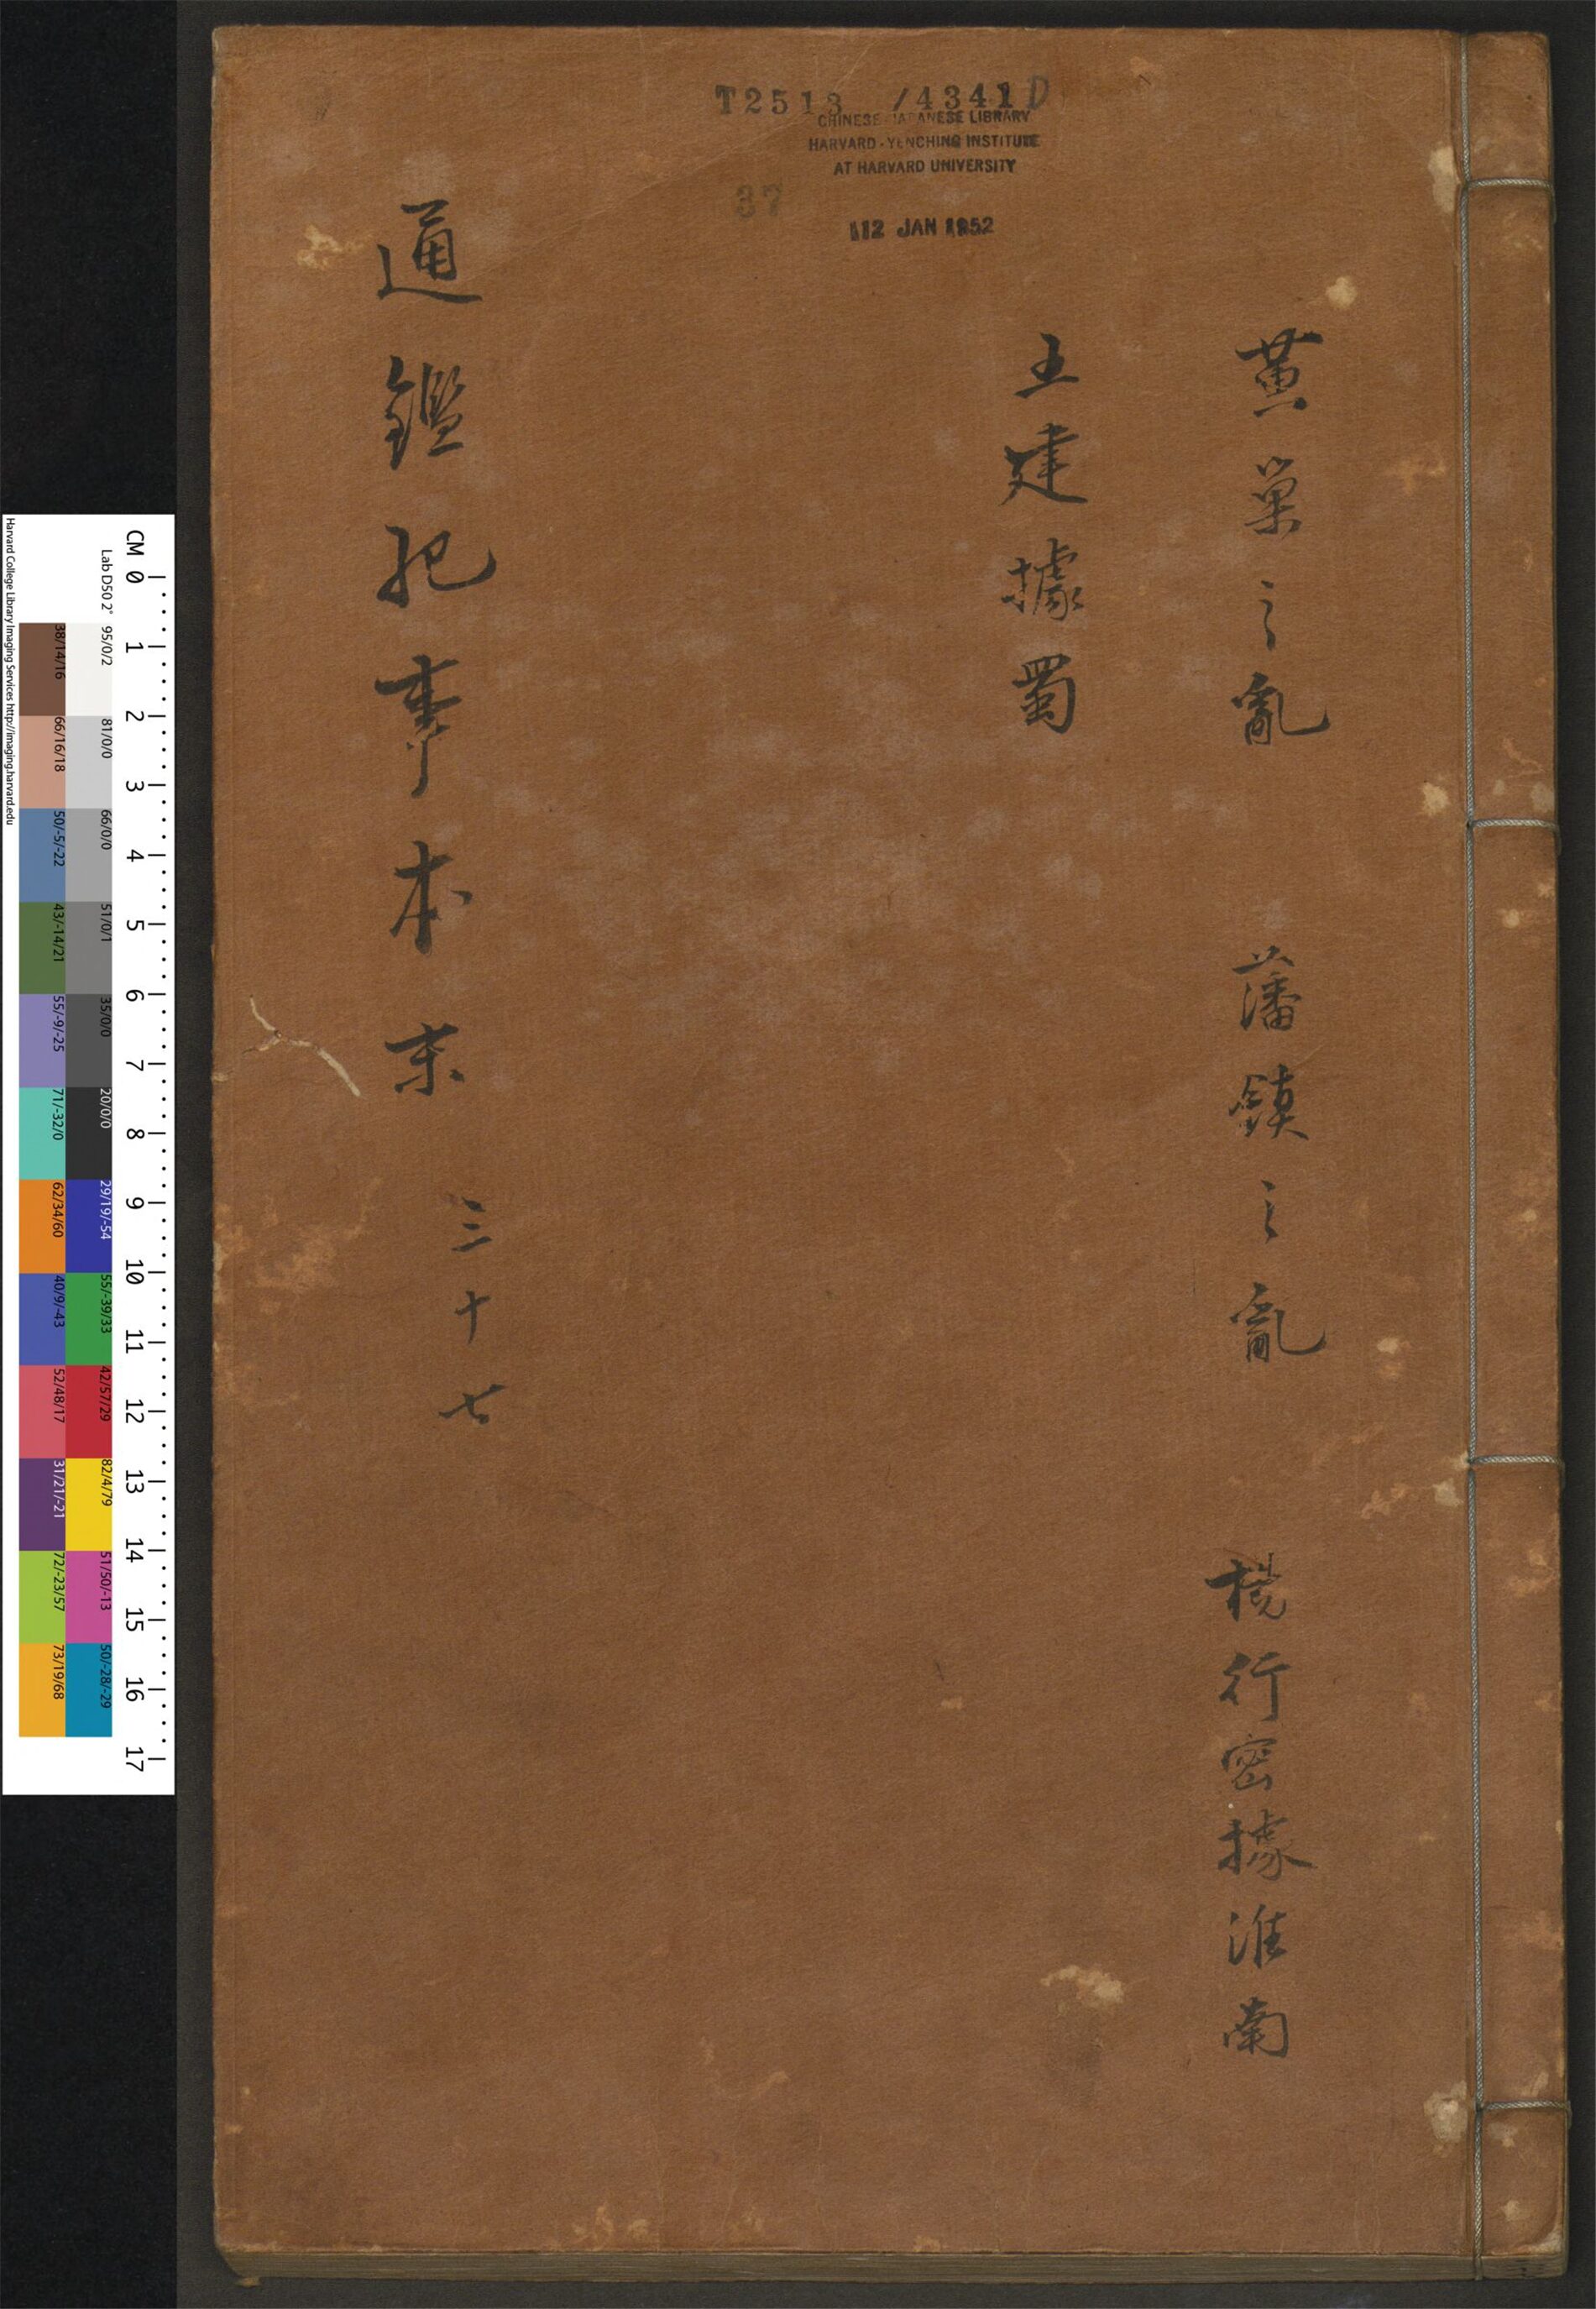 T2513 /4341 D
CHINESE-JAPANESE LIBRARY
HARVARD-YENCHING INSTITUTE
AT HARVARD UNIVERSITY
37
12 JAN 1952
黃巢之亂 藩鎮之亂 楊行密據淮南
王建據蜀
通鑑紀事本末 三十七
CM 0 1 2 3 4 5 6 7 8 9 10 11 12 13 14 15 16 17
Lab D50 2° 95/0/2 81/0/0 66/0/0 51/0/1 35/0/0 20/0/0 29/19/-54 55/-39/33 42/57/29 82/4/79 51/50/-13 50/-28/-29
38/14/16 66/16/18 50/-5/-22 43/-14/21 55/-9/-25 71/-32/0 62/34/60 40/9/-43 52/48/17 31/21/-21 72/-23/57 73/19/68
Harvard College Library Imaging Services http://imaging.harvard.edu